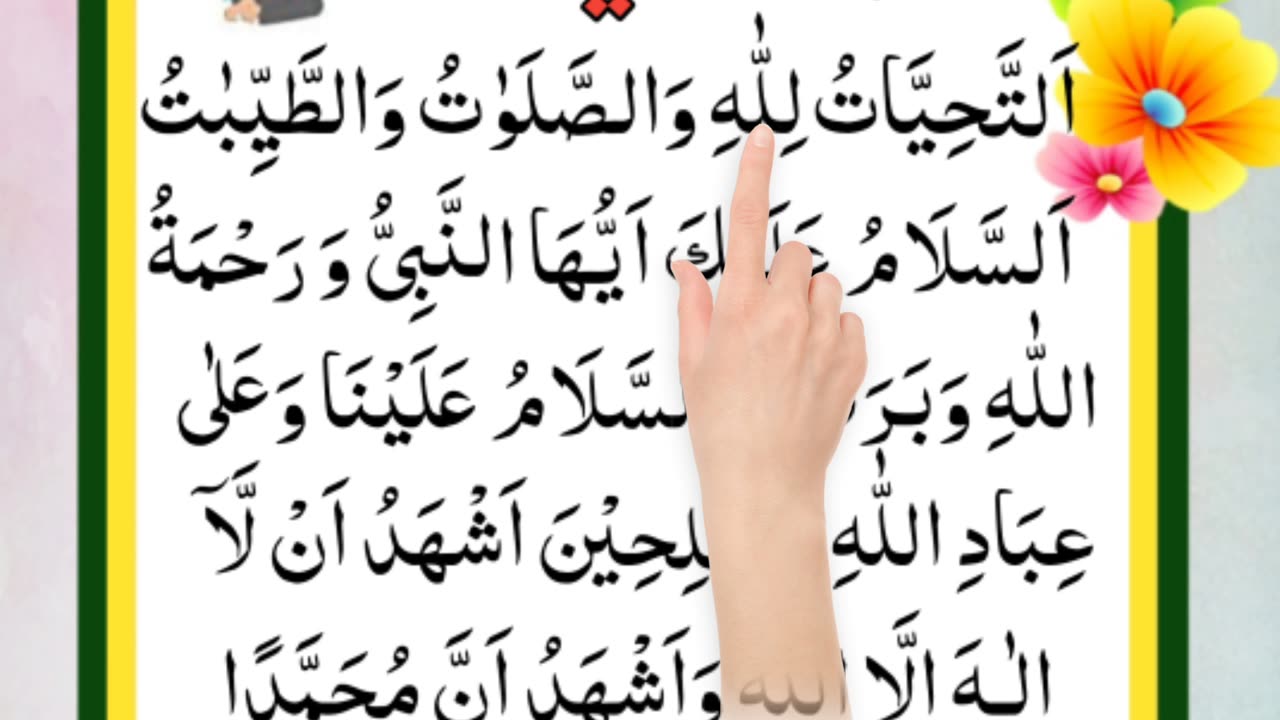 اَلتَّحِيَّاتُ لِلّٰهِ وَالصَّلَوٰتُ وَالطَّيِّبٰتُ
اَلسَّلَامُ اَيُّهَا النَّبِىُّ وَ رَحْمَةُ
اللّٰهِ عَلَيْنَا وَعَلٰى
عِبَادِ اللّٰهِ اَشْهَدُ اَنْ لَّآ
اِلٰهَ اِلَّا اللّٰه وَاَشْهَدُ اَنَّ مُحَمَّدًا